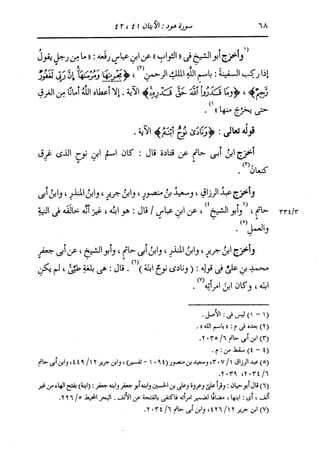 ٦٨ سورة هود : الآيتان ٤١ ، ٤٢
(١ وأخرج أبو الشيخ فى « الثواب » عن ابن عباس رفعه : « ما من رجل يقول
إذا ركب السفينة : باسم الله الملك الرحمن(٢) ، ﴿بَحْرِىٰهَا وَمُرْسَىٰهَآ إِنَّ رَبِّى لَغَفُورٌ
رَّحِيمٌ﴾ ، ﴿وَمَا قَدَرُوا۟ ٱللَّهَ حَقَّ قَدْرِهِۦ﴾ الآية . إلا أعطاه الله أمانًا من الغرق
حتى يخرج منها »١) .
قوله تعالى : ﴿وَنَادَىٰ نُوحٌ ٱبْنَهُۥ﴾ الآية .
أخرج ابن أبى حاتم عن قتادة قال : كان اسم ابن نوح الذى غرق
كنعان(٣) .
وأخرج عبد الرزاق ، وسعيد بن منصور ، وابن جرير ، وابن المنذر ، وابن أبى
حاتم ، (٤ وأبو الشيخ٤) ، عن ابن عباس / قال : هو ابنه ، غير أنه خالفه فى النية ٣٣٤/٣
والعمل(٥) .
وأخرج ابن جرير ، وابن المنذر ، وابن أبى حاتم ، وأبو الشيخ ، عن أبى جعفر
محمد بن على فى قوله : ( ونادى نوح ابنه )(٦) . قال : هى بلغة طيئ ، لم يكن
ابنه ، وكان ابن امرأته(٧) .
(١ - ١) ليس فى : الأصل .
(٢) بعده فى م : « باسم الله » .
(٣) ابن أبى حاتم ٢٠٣٥/٦ .
(٤ - ٤) سقط من : م .
(٥) عبد الرزاق ٣٠٧/١ ، وسعيد بن منصور (١٠٩٤ - تفسير) ، وابن جرير ٤٢٩/١٢ ، وابن أبى حاتم
٢٠٣٤/٦ ، ٢٠٣٩ .
(٦) قال أبو حيان : وقرأ على وعروة وعلى بن الحسين وابنه أبو جعفر وابنه جعفر : (ابنه) بفتح الهاء من غير
ألف ، أى : ابنها ، مضافًا لضمير امرأته فاكتفى بالفتحة عن الألف . البحر المحيط ٢٢٦/٥ .
(٧) ابن جرير ٤٢٦/١٢ ، وابن أبى حاتم ٢٠٣٤/٦ .